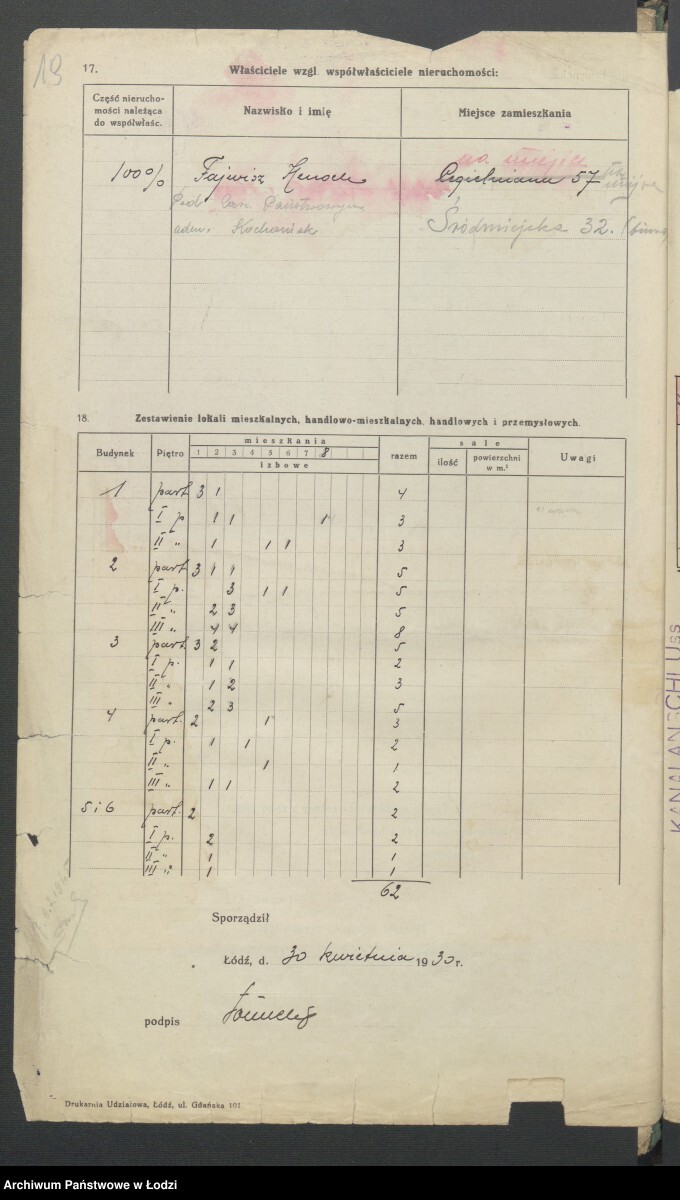 19
17. Właściciele wzgl. współwłaściciele nieruchomości:
Część nierucho-
mości należąca
do współwłaśc.
Nazwisko i imię
Miejsce zamieszkania
na miejscu
100% Fajwisz Henoch Cegielniana 57
adm. Kochaniak Śródmiejska 32. (biuro)
18. Zestawienie lokali mieszkalnych, handlowo-mieszkalnych, handlowych i przemysłowych.
Budynek Piętro mieszkania razem sale Uwagi
1 2 3 4 5 6 7 8
izbowe
ilość powierzchni
w m.²
1 part. 3 1 4
I p. 1 1 1 3
II " 1 1 1 3
2 part. 3 1 1 5
I p. 3 1 1 5
II " 2 3 5
III " 4 4 8
3 part. 3 2 5
I p. 1 1 2
II " 1 2 3
III " 2 3 5
4 part. 2 1 3
I p. 1 1 2
II " 1 1
III " 1 1 2
5 i 6 part. 2 2
I p. 2 2
II " 1 1
III " 1 1
62
Sporządził
Łódź, d. 30 kwietnia 1930 r.
podpis
Drukarnia Udziałowa, Łódź, ul. Gdańska 101
KANALANSCHLUSS
Archiwum Państwowe w Łodzi